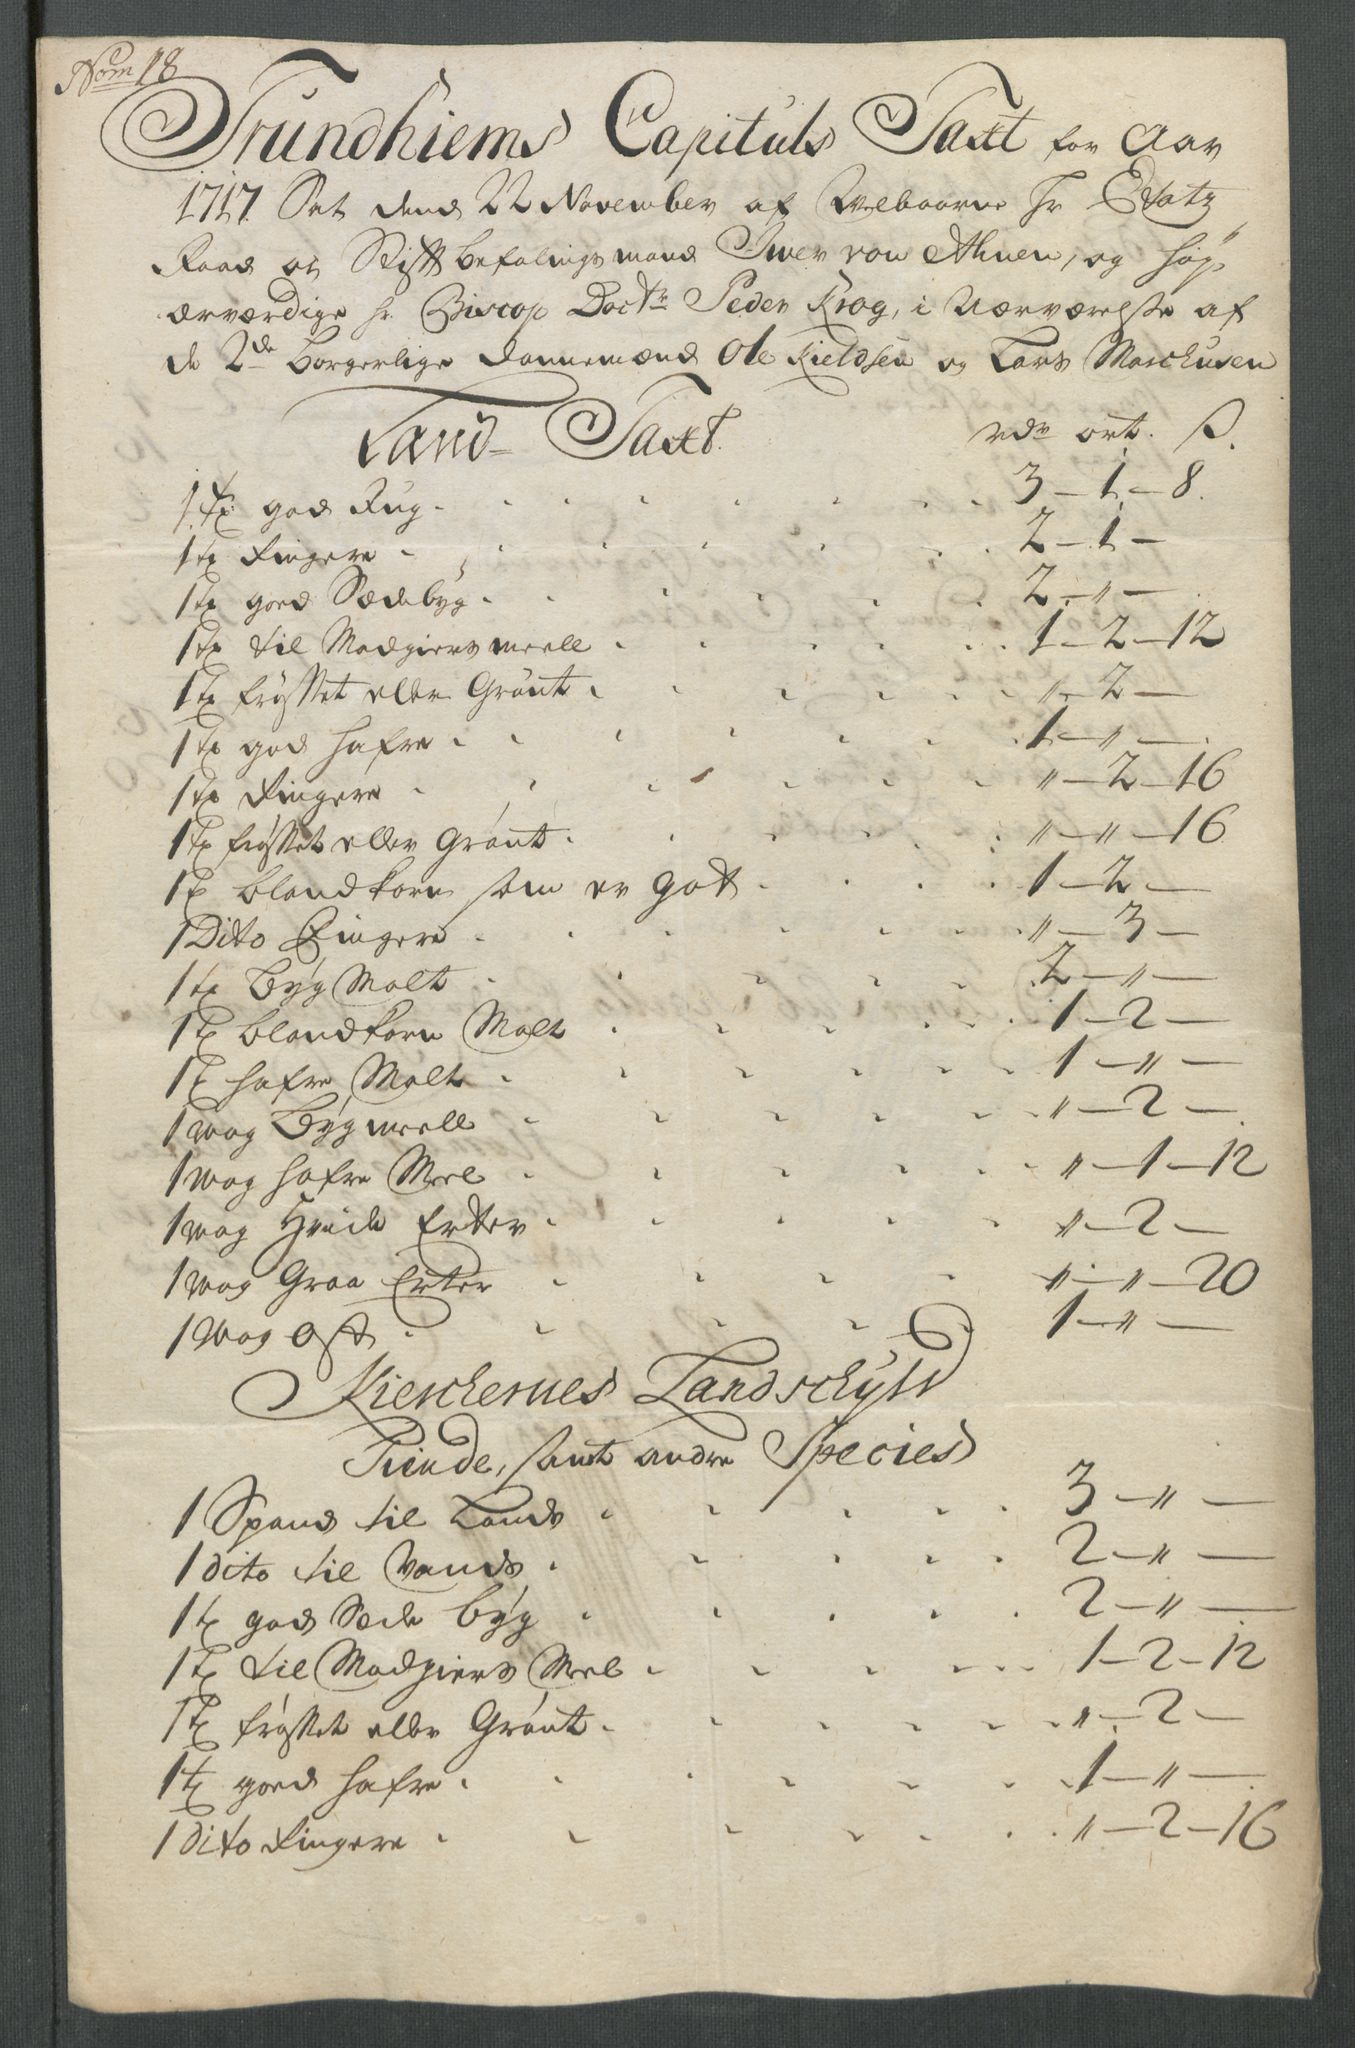 Nom 18
Trundhiems Capituls Taxt for Aar
1717 Sat dend 22 November af Welbaarne Hr Etatz
Raad og Stiftbefalingsmand Iwer von Ahnen, og høy
ærværdige Hr. Biscop Doctr Peder Krog, i Nærværelse af
de 2de borgerlige dannemænd Ole Kieldsen og Lars Marchusen
Land-Taxt. rdr ort. ß.
1 tø god Rug 3 – 1 – 8.
1 tø Ringere 2 – 1 –
1 tø goed Sædebyg 2 – „ –
1 tø til Madgiers meell 1 – 2 – 12
1 tø frøsset eller Grønt „ – 2 –
1 tø god hafre 1 – „ –
1 tø Ringere „ – 2 – 16
1 tø frøsset eller Grønt „ – „ – 16
1 tø blandkorn som er got 1 – 2 –
1 Dito Ringere „ – 3 –
1 tø Byg Malt 2 – „ –
1 tø blandkorn Malt 1 – 2 –
1 tø hafre Malt 1 – „ –
1 wog Bygmeell „ – 2 –
1 wog hafre Meel „ – 1 – 12
1 wog Hvide Erter „ – 2 –
1 wog Graa Erter „ – „ – 20
1 Wog Ost 1 – „ –
Kierckernes Landschyld
Tiende, samt andre Species
1 Spand til Lands 3 – „ –
1 dito til Vands 2 – „ –
1 tø god Sæde byg 2 – „ –
1 tø til Madgiers Meel 1 – 2 – 12
1 tø frøsset eller Grønt „ – 2 –
1 tø goed hafre 1 – „ –
1 Dito Ringere „ – 2 – 16